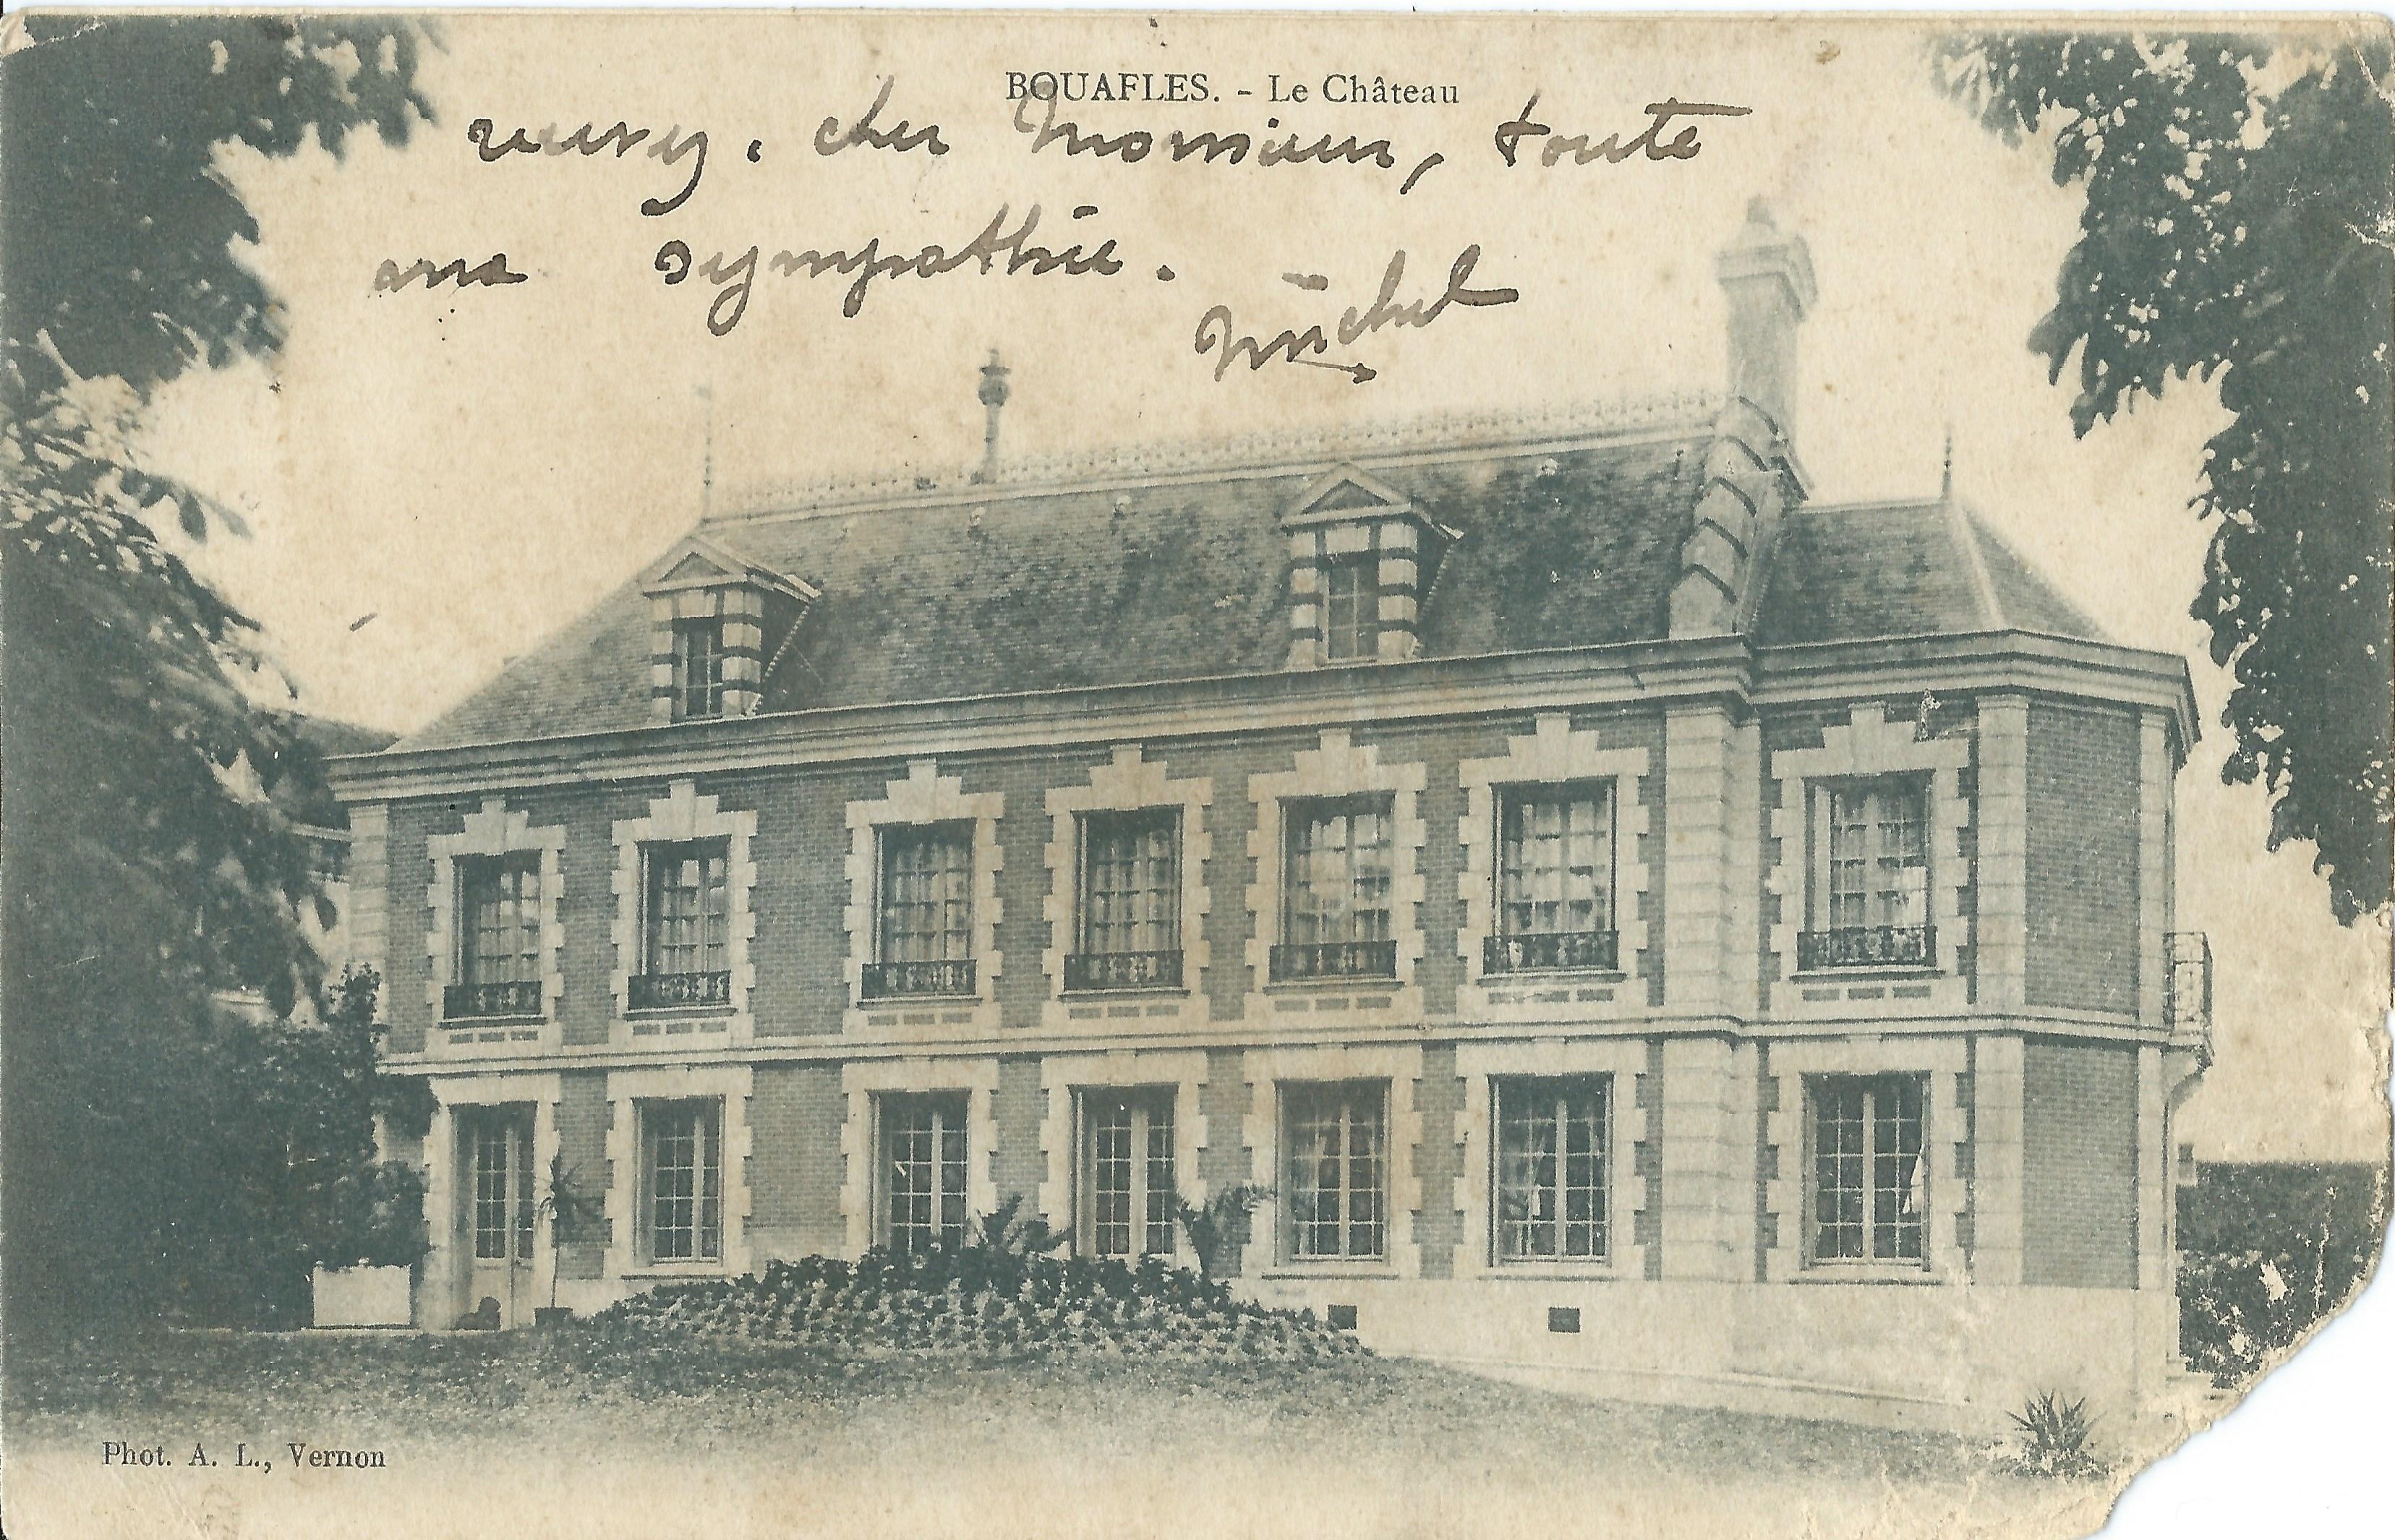 BOUAFLES. - Le Château
cher Monsieur, toute
ma sympathie.
Michel
Phot. A. L., Vernon